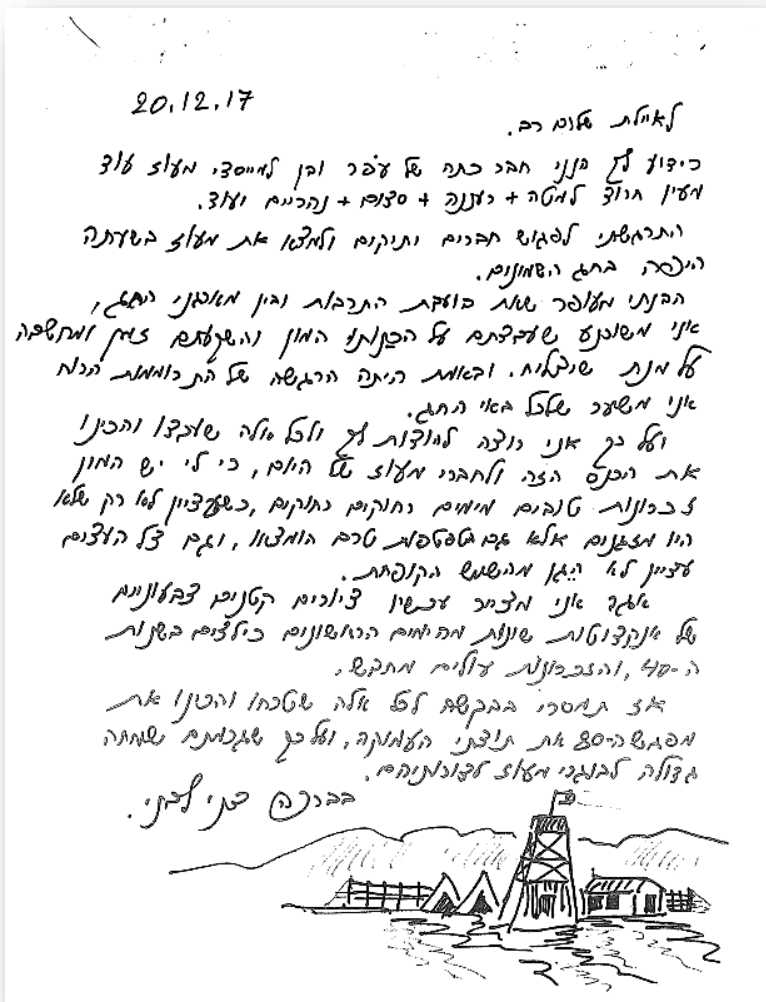 20.12.17
לאיילת שלום רב.
כידוע לך הנני חבר כתה של עפר ובן למייסדי מעוז עוד
מעין חרוד למטה + רעננה + סדום + נהריים ועוד.
התרגשתי לפגוש חברים ותיקים ולמצא את מעוז בשעתה
היפה בחג השמונים.
הבנתי מעופר שאת בועדת התרבות ובין מארגני החג,
אני משוכנע שעבדתם על הכנותיו המון והשקעתם זמן ומחשבה
על מנת שיצליח. ובאמת היתה הרגשה של התרוממות הרוח
אני משער שלכל באי החג.
ועל כך אני רוצה להודות לך ולכל אלה שעבדו והכינו
את הכנס הזה ולחברי מעוז של היום, כי לי יש המון
זכרונות טובים מימים רחוקים רחוקים, כשעדיין לא רק שלא
היו מזגנים אלא גם טפטפות טרם הומצאו, וגם צל העצים
עדיין לא הֵגֵן מהשמש הקופחת.
אגב אני מצייר עכשיו ציורים קטנים צבעוניים
של אנקדוטות שונות מהימים הראשונים כילדים בשנות
ה-40, והזכרונות עולים מחדש.
אז תמסרי בבקשה לכל אלה שטרחו והכינו את
מפגש ה-80 את תודתי העמוקה, ועל כך שגרמתם שמחה
גדולה לבוגרי מעוז לדורותיהם.
בברכה